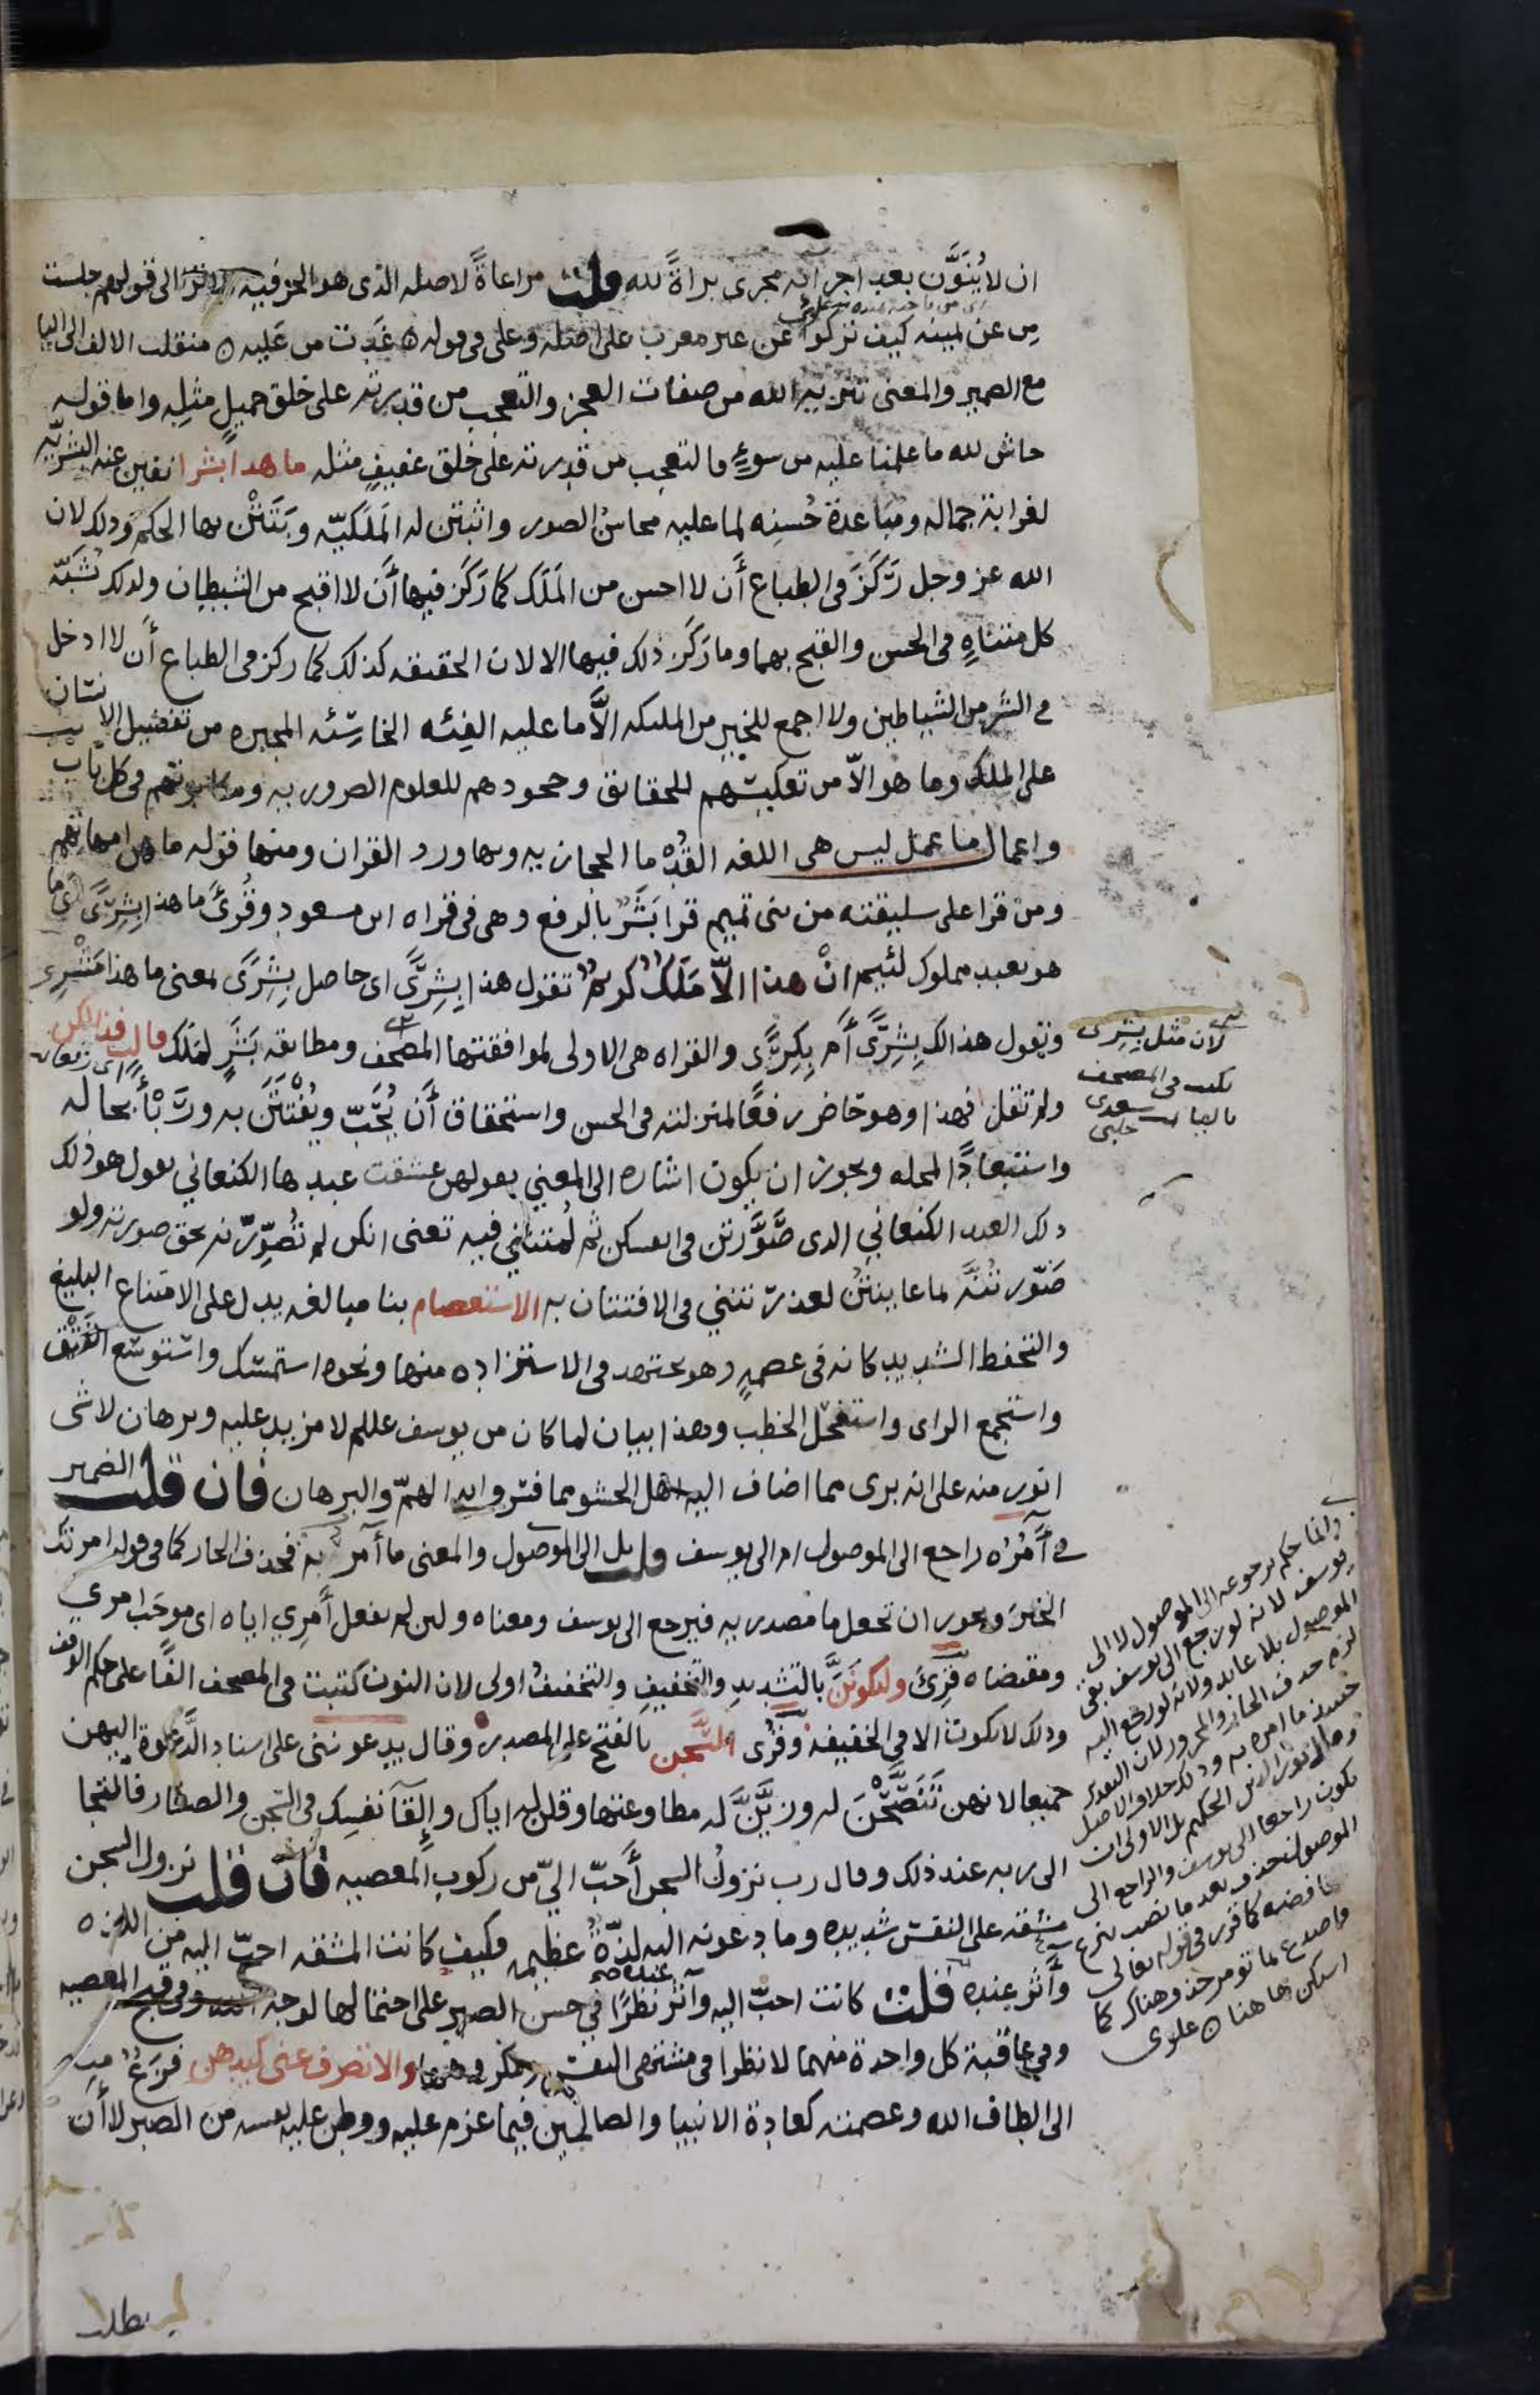 ان لا يُنَوَّن بعد اجرائه مجرى براةً لله قلت مراعاةً لاصله الذى هو الحرفيه الا ترى الى قولهم جلست
مِن عن يمينه كيف تركوا عن غير معرب على اصله وعلى فى قوله ه غَدَت من عَليه ه منقلب الالف الى اليا
مع الضمير والمعنى تنزيه الله من صفات العجز والتعجب من قدرته على خلق جميلٍ مثلِه واما قوله
حاش لله ما علمنا عليه من سوءٍ فالتعجب من قدرته على خلق عفيفٍ مثله ما هذا بشرا نفين عنه البشريّه
لغرابة جماله ومُبَاعدة حُسنِه لما عليه محاسنُ الصور واثبتن له المَلَكيّه وبَتَتْن بها الحكم وذلك لان
الله عز وجل رَكَزَ فى الطباع أَن لا احسن من المَلَك كما رَكَز فيها أَن لا اقبح من الشيطان ولذلك يُشَبَّه
كل متناهٍ فى الحسن والقبح بهما وما رَكَز ذلك فيها الا لان الحقيقه كذلك كما ركز فى الطباع أَن لا ادخل
فى الشر من الشياطين ولا اجمع للخير من الملىكه الَّا ما عليه الفِئه الخاسِئه المجبره من تفضيل الانسان
على الملك وما هو الّا من تعكيسهم للحقائق وجحودهم للعلوم الضروريه ومكابرتهم فى كل باب
واعمال ما عمل ليس هى اللغه القُدْما الحجازيه وبها ورد القران ومنها قوله ما هن امهاتهم
ومن قرا على سليقته من بنى تميم قرا بَشَرٌ بالرفع وهى فى قراه ابن مسعود وقُرئَ ما هذا بِشِرًى اى ما
هو بعبد مملوك لئيم انْ هذا الّا مَلَكٌ كريمٌ تقول هذا بِشِرًى اى حاصل بِشِرًى بمعنى ما هذا مُشْتَرى
وتقول هذا لك بِشِرًى أَم بِكِرًى والقراه هى الاولى لموافقتها المصحف ومطابقه بَشَرٍ لمَلَك قالت فذلكن
ولم تقل فهذا وهو حَاضر رفعًا لمنزلته فى الحسن واستحقاق أَن يُحَبّ ويُفْتَتَن به ورَبْأً بحاله
واستبعادًا لمحله ويجوز ان يكون اشاره الى المعني بقولهن عشقت عبدها الكنعاني تقول هو ذلك
العبد الكنعاني الذى صَوَّرتن فى انفسكن ثم لُمتنّني فيه تعنى انكن لم تُصَوِّرنه بحق صورته ولو
صَوّرتُنَّه بما عاينتُن لعذرتنّني فى الافتتان به الاستعصام بنا مبالغه يدل على الامتناع البليغ
والتحفظ الشديد كانه فى عصمهٍ وهو يجتهد فى الاستزاده منها ونحوه استمسك واستوسع الفَتْق
واستجمع الراى واستفحل الخطب وهذا بيان لما كان من يوسف عللم لا مزيد عليه وبرهان لا شى
انور منه على انه برى مما اضاف اليه اهل الحشو مما فسّروا به الهمّ والبرهان فان قلت الضمير
فى أَمُرُه راجع الى الموصول ام الى يوسف قلت بل الى الموصول والمعنى ما آمر به فحذف الجار كما فى قوله امرتك
الخيرَ ويجوز ان تجعل ما مصدريه فيرجع الى يوسف ومعناه ولىن لم يفعل أَمرِي اياه اى موجَب امري
ومقتضاه قُرِئَ وليكونَنَّ بالتشديدِ والتخفيفِ والتخفيفُ اولى لان النون كُتبت فى المصحف الفًا على حكم الوقف
وذلك لا يكون الا فى الخفيفه وقُرى السَّجن بالفتح على المصدر وقال يدعونني على اسناد الدَّعوة اليهن
جميعا لانهن تَنَصَّحْنَ له وزيَّنَّ له مطاوعتها وقلن له اياك وإِلقآ نفسِك فى السجن والصغار فالتجا
الى ربه عند ذلك وقال رب نزولُ السجن أَحبّ اليّ من ركوبِ المعصيه فان قلت نزول السجن
مشقه على النفس شديده وما دعونه اليه لذّةٌ عظيمه فكيف كانت المشقه احبّ اليه من اللذه
وآثر عنده قلت كانت احبّ اليه وآثر عنده نظرًا فى حسن الصبر على احتمالها لوجه الله وفى قبح المعصيه
وفي عاقبة كل واحدة منهما لا نظرا فى مشتهى النفس ومكروهها والا تصرف عنى كيدهن فَزَعٌ منه
الى الطاف الله وعصمته كعادة الانبيا والصالحين فيما عزم عليه ووطن عليه نفسه من الصبر لا أَن
لان مثل بشرى
يكتب فى المصحف
باليا سعدى
حلبى
وانما حكم برجوعه الى الموصول لا الى
يوسف لانه لو رجع الى يوسف بقى
الموصول بلا عايد ولانه لو رجع اليه
لزم حذف الجار والمجرور لان التقدير
حينئذ ما امره به وذلك خلاف الاصل
وقال نور الدين الحكيم بل الاولى ان
يكون راجعا الى يوسف والراجع الى
الموصول حذف بعد ما نصب بنزع
خافضه كما قرر فى قوله تعالى
فاصدع بما تومر حذف هناك كما
امكن هاهنا ه علوى
يطلب